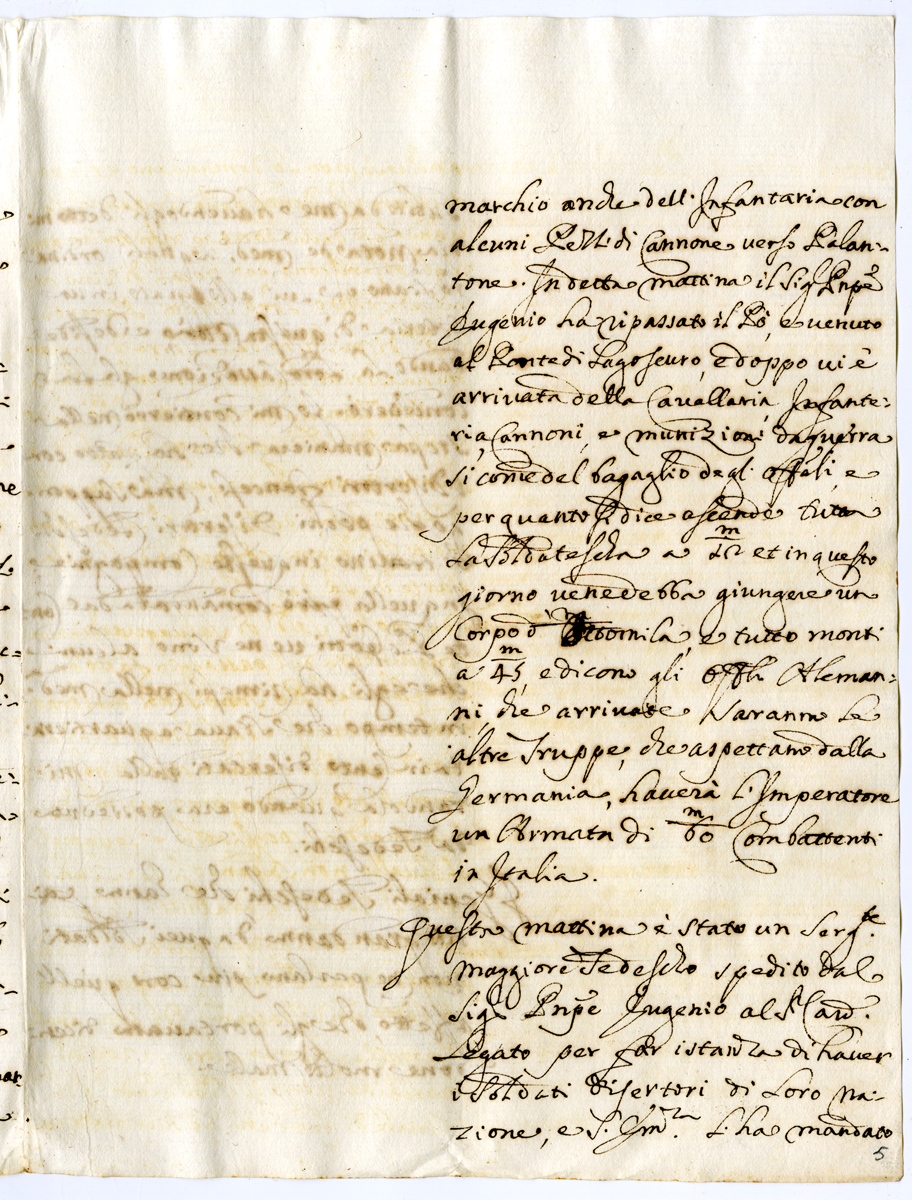 marchio anche dell'Infantaria con
alcuni Pezzi di Cannone verso Palan-
tone. In detta mattina il Sig.r Pnpe
Eugenio ha ripassato il Pò, e venuto
al Ponte di Lagoscuro, e doppo vi è
arrivata della Cavallaria, Infante-
ria, Cannoni, e munizioni da guerra
si come del bagaglio degli Offali, e
per quanto si dice ascende tutta
la Soldatescha a et in questo
giorno vene debba giungere un
Corpo d' mila, e tutto monti
a 45 m, e dicono gli Offli Aleman-
ni, che arrivate saranno le
altre Truppe, che aspettano dalla
Germania, haverà l'Imperatore
un Armata di 60 m Combattenti
in Italia.
Questa mattina è stato un Serg.te
maggiore Tedescho spedito dal
Sig.r Pnpe Eugenio al S.r Card.
Legato per far istanza di haver
i Soldati disertori di Loro na-
zione, e S. Em.za l'ha mandato
5